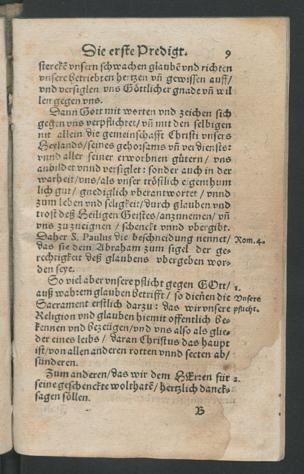 Die erste Predigt. 9
sterckẽ vnsern schwachen glaubẽ vnd richten
vnsere betrübten hertzen vñ gewissen auff/
vnd versiglen vns Göttlicher gnade vñ wil
len gegen vns.
Dann Gott mit worten vnd zeichen sich
gegen vns verpflichtet/ vñ mit den selbigen
nit allein die gemeinschafft Christi vnsers
Heylands/ seines gehorsams vñ verdiensts:
vnnd aller seiner erworbnen gütern/ vns
anbildet vnnd versiglet: sonder auch in der
warheit/ vns/ als vnser tröstlich eigenthum
lich gut/ gnediglich vberantwortet/ vnnd
zum leben vnd seligkeit/ durch glauben vnd
trost deß Heiligen Geistes/ anzunemen/ vñ
vns zuzueignen/ schenckt vnnd vbergibt.
Daher S. Paulus die beschneidung nennet/ Rom. 4.
das sie dem Abraham zum sigel der ge-
rechtigkeit deß glaubens vbergeben wor-
den seye.
So viel aber vnsere pflicht gegen GOtt/ 1.
auß wahrem glauben betrifft/ so dienen die Vnsere
Sacrament erstlich darzu: das wir vnsere pflicht.
Religion vnd glauben hiemit offentlich be-
kennen vnd bezeügen/ vnd vns also als glie-
der eines leibs/ daran Christus das haupt
ist/ von allen anderen rotten vnnd secten ab-
sünderen.
Zum anderen/ das wir dem HErren für 2.
seine geschenckte wolthatẽ/ hertzlich danck-
sagen söllen.
B